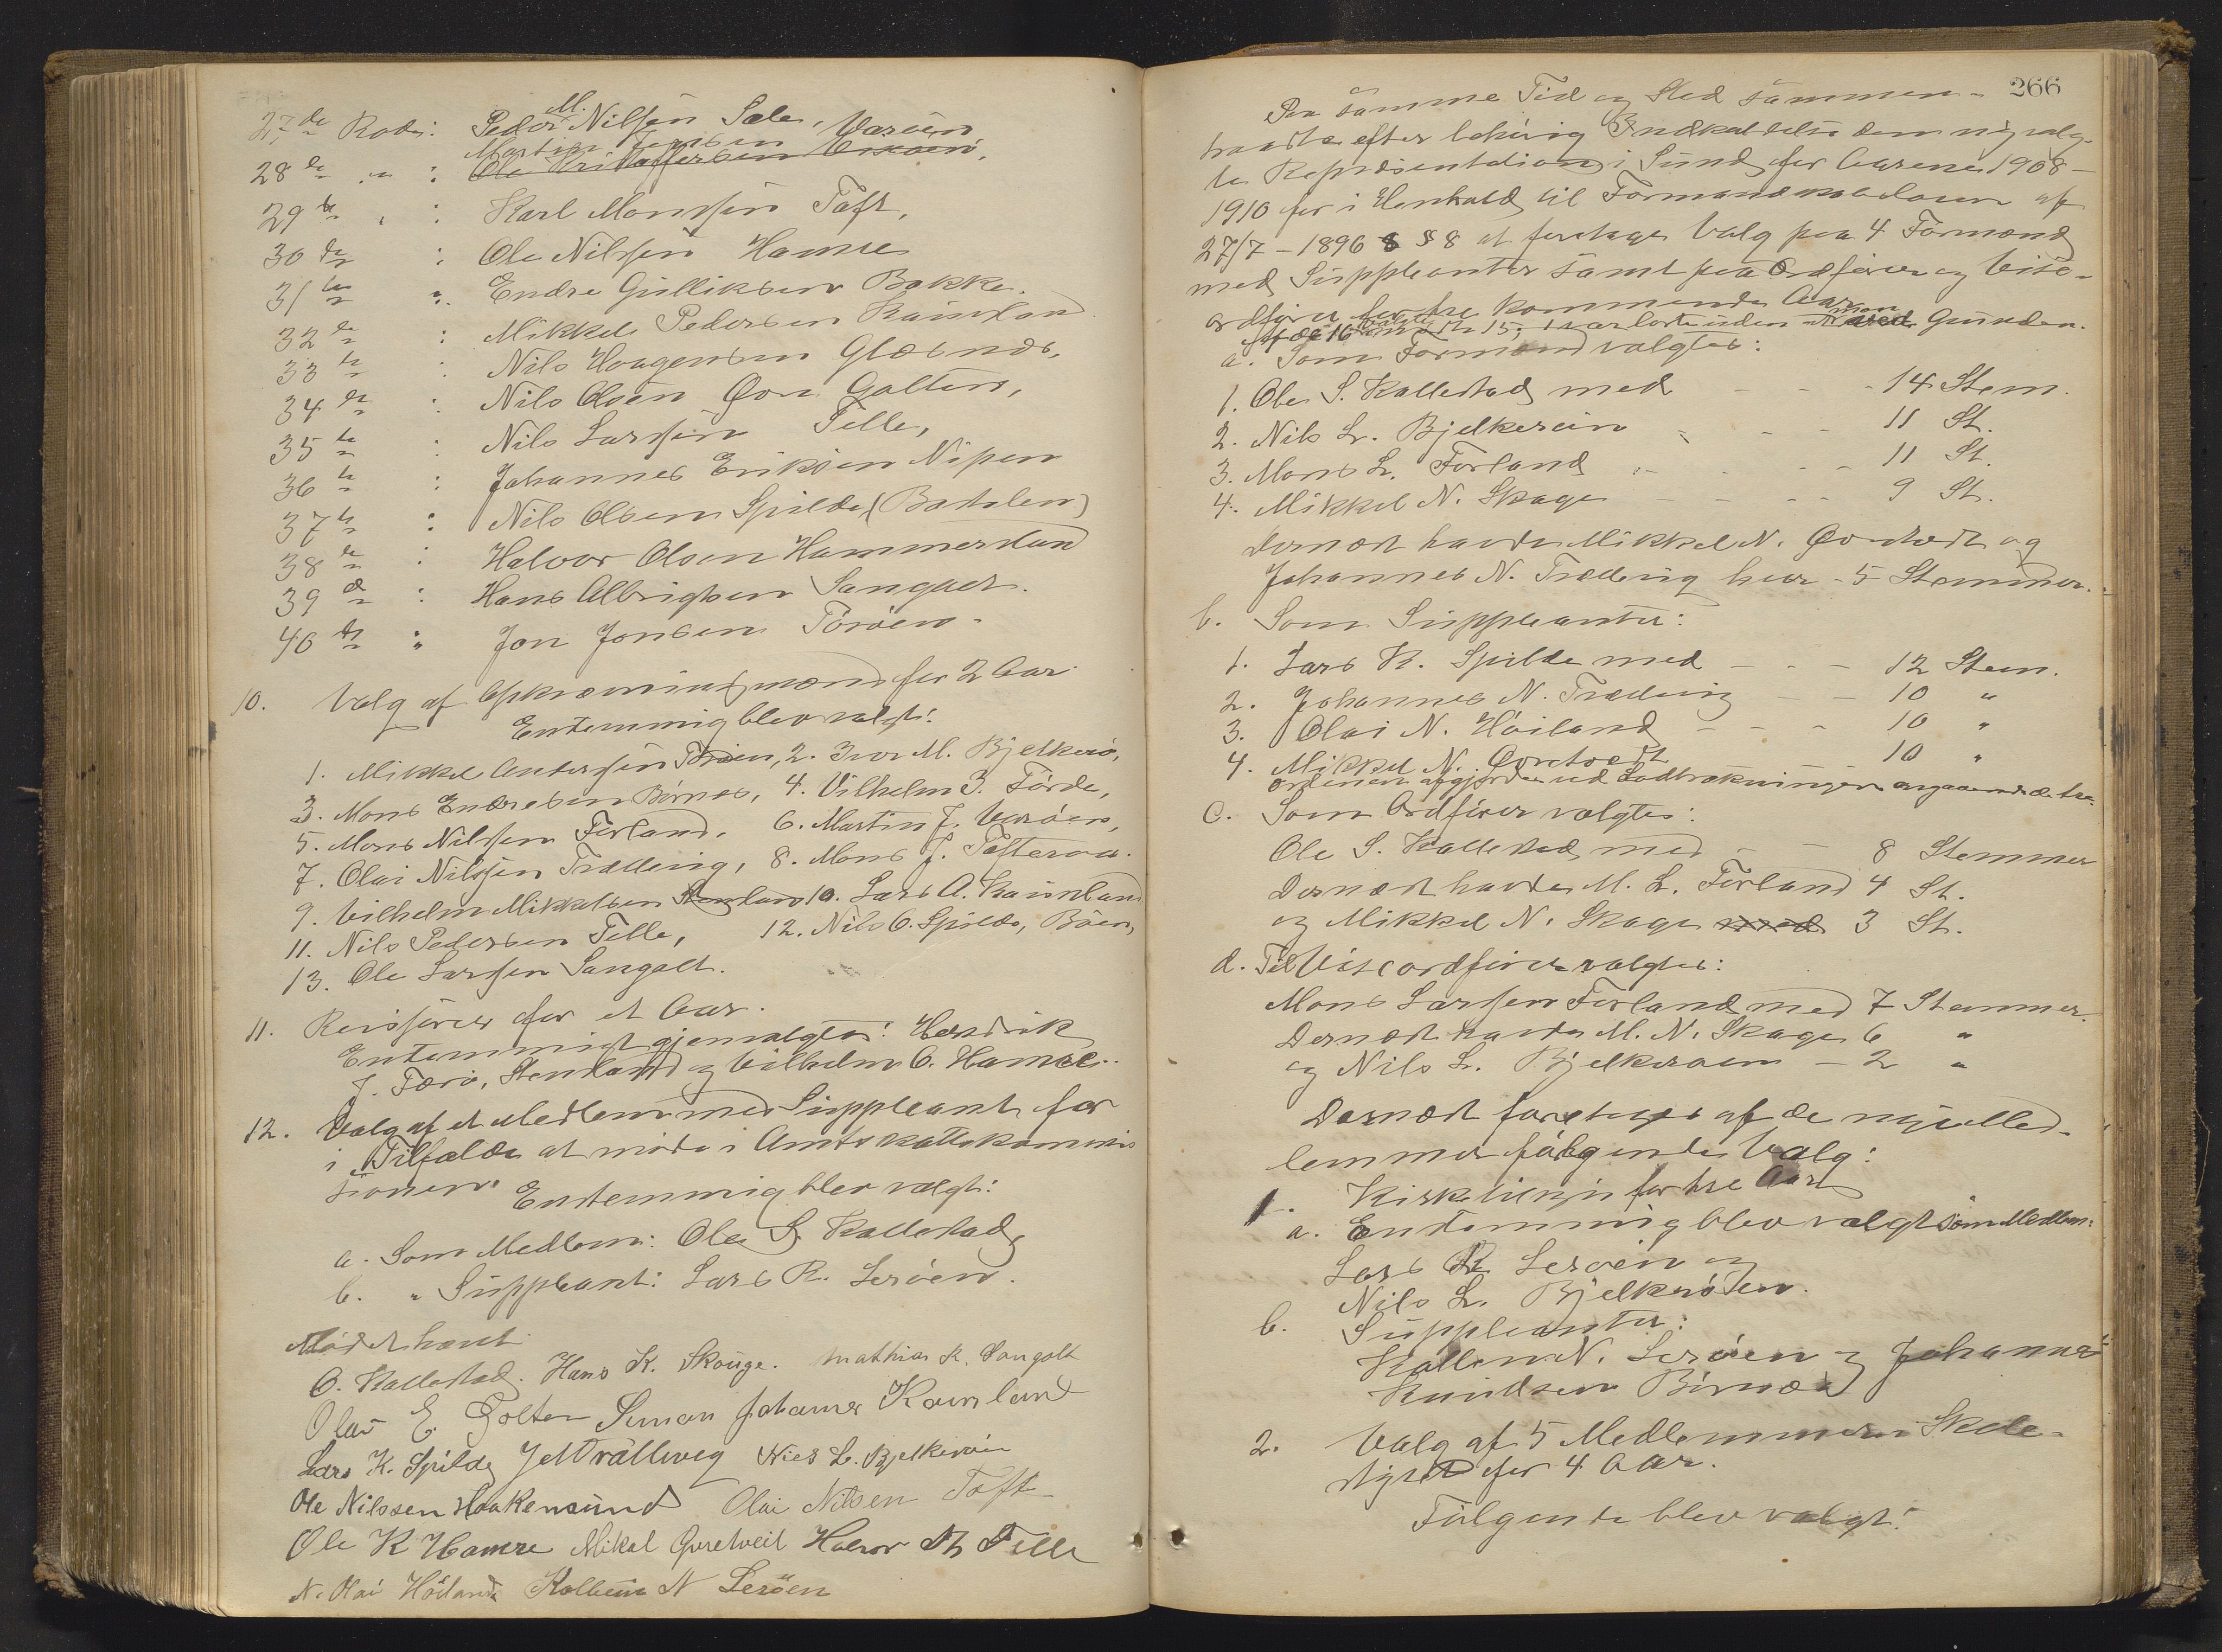 27de Rode: Peder M. Nilssen Sæle,
Morten Jensen Varøen
28de " : Ole Kristoffersen
29de " : Karl Monssen Toft,
30de : Ole Nilssen Hamre
31te " Endre Gulliksen Bakke.
32de : Mikkel Pedersen Kausland
33te : Nils Haagensen Glæsnæs,
34de : Nils Olsen Øvre Golten,
35te : Nils Larssen Telle,
36te : Johannes Eriksen Nipen
37te : Nils Olsen Spilde (Botelen)
38de : Halvor Olsen Hammersland
39de : Hans Albrigtsen Sangolt.
40de " Jon Jonsen Toröen.
10. Valg af Opkrævningsmænd for 2 Aar
Enstemmig blev valgt:
1. Mikkel Anderssen Toröen, 2. Iver M. Bjelkerö,
3. Mons Endresen Börnes, 4. Vilhelm J. Förde,
5. Mons Nilssen Forland, 6. Martin J. Varöen,
7. Olai Nilssen Trælleviig, 8. Mons J. Tofterøen.
9. Vilhelm Mikkelsen Stenland 10. Lars A. Kausland
11. Nils Pedersen Telle, 12. Nils O. Spilde, Böen,
13. Ole Larssen Sangolt.
11. Revisorer for et Aar.
Enstemmigt gjenvalgtes: Hendrik
J. Tærö, Stenland og Vilhelm O. Hamre.
12. Valg af et Medlem med Suppleant for
i Tilfælde at möde i Amtsskattekommis
sionen. Enstemmig blev valgt:
a. Som Medlem: Ole S. Kallestad,
b. " Suppleant: Lars R. Leröen.
Mödet hævet
O. Kallestad. Hans K. Skouge. Mathias K. Sangolt
Olai E. Golten Simon Johannes Kausland
Lars K. Spilde J N Trælleveg Niels L. Bjelkeröen
Ole Nilssen Haakensund Olai Nilsen Toft
Ole K Hamre Mikal Qvretveit Halvor Th Telle
N. Olai Höiland Kolbein N Leröen
266
Paa samme Tid og Sted sammen-
traadte efter lovlig Indkaldelse den nyvalg-
te Repræsentation i Sund for Aarene 1908-
1910 for i Henhold til Formandskabsloven af
27/7-1896 § 8 at foretage Valg paa 4 Formænd
med Suppleanter samt paa Ordfører og Vise-
ordfører for tre kommende Aar
Af de 16 valgte 15. 1 var borte uden Grunden.
a. Som Formænd valgtes:
1. Ole S. Kallestad med - - - 14 Stem.
2. Nils L. Bjelkeröen - - - 11 St.
3. Mons L. Forland - - - 11 St.
4. Mikkel N. Skage - - - 9 St.
Dernæst havde Mikkel N. Qvretvedt og
Johannes N. Trælleviig hver - 5 Stemmer.
b. Som Suppleanter:
1. Lars K. Spilde med - - - 12 Stem.
2. Johannes N. Trælleviig - - 10 "
3. Olai N. Höiland - - - 10 "
4. Mikkel N. Qvretvedt 10 "
Ordenen afgjordes ved Lodtrækningen angaaende de tre.
c. Som Ordförer valgtes:
Ole S. Kallestad med - - 8 Stemmer
Dernæst havde M. L. Forland 4 St.
og Mikkel N. Skage med 3 St.
d. Til Viseordförer valgtes:
Mons Larssen Forland med 7 Stemmer.
Dernæst havde M. N. Skage 6 "
og Nils L. Bjelkeroen - 2 "
Dernæst foretoges af de nye Med-
lemmer fölgende Valg:
1. Kirketilsyn for tre Aar
a. Enstemmig blev valgt som Medlem:
Lars R. Leröen og
Nils L. Bjelkeröen.
b. Suppleanter:
Kolbein N. Leröen og Johannes
Knudsen Börnæs
2. Valg af 5 Medlemmer i Skole-
styret for 4 Aar.
Fölgende blev valgt: